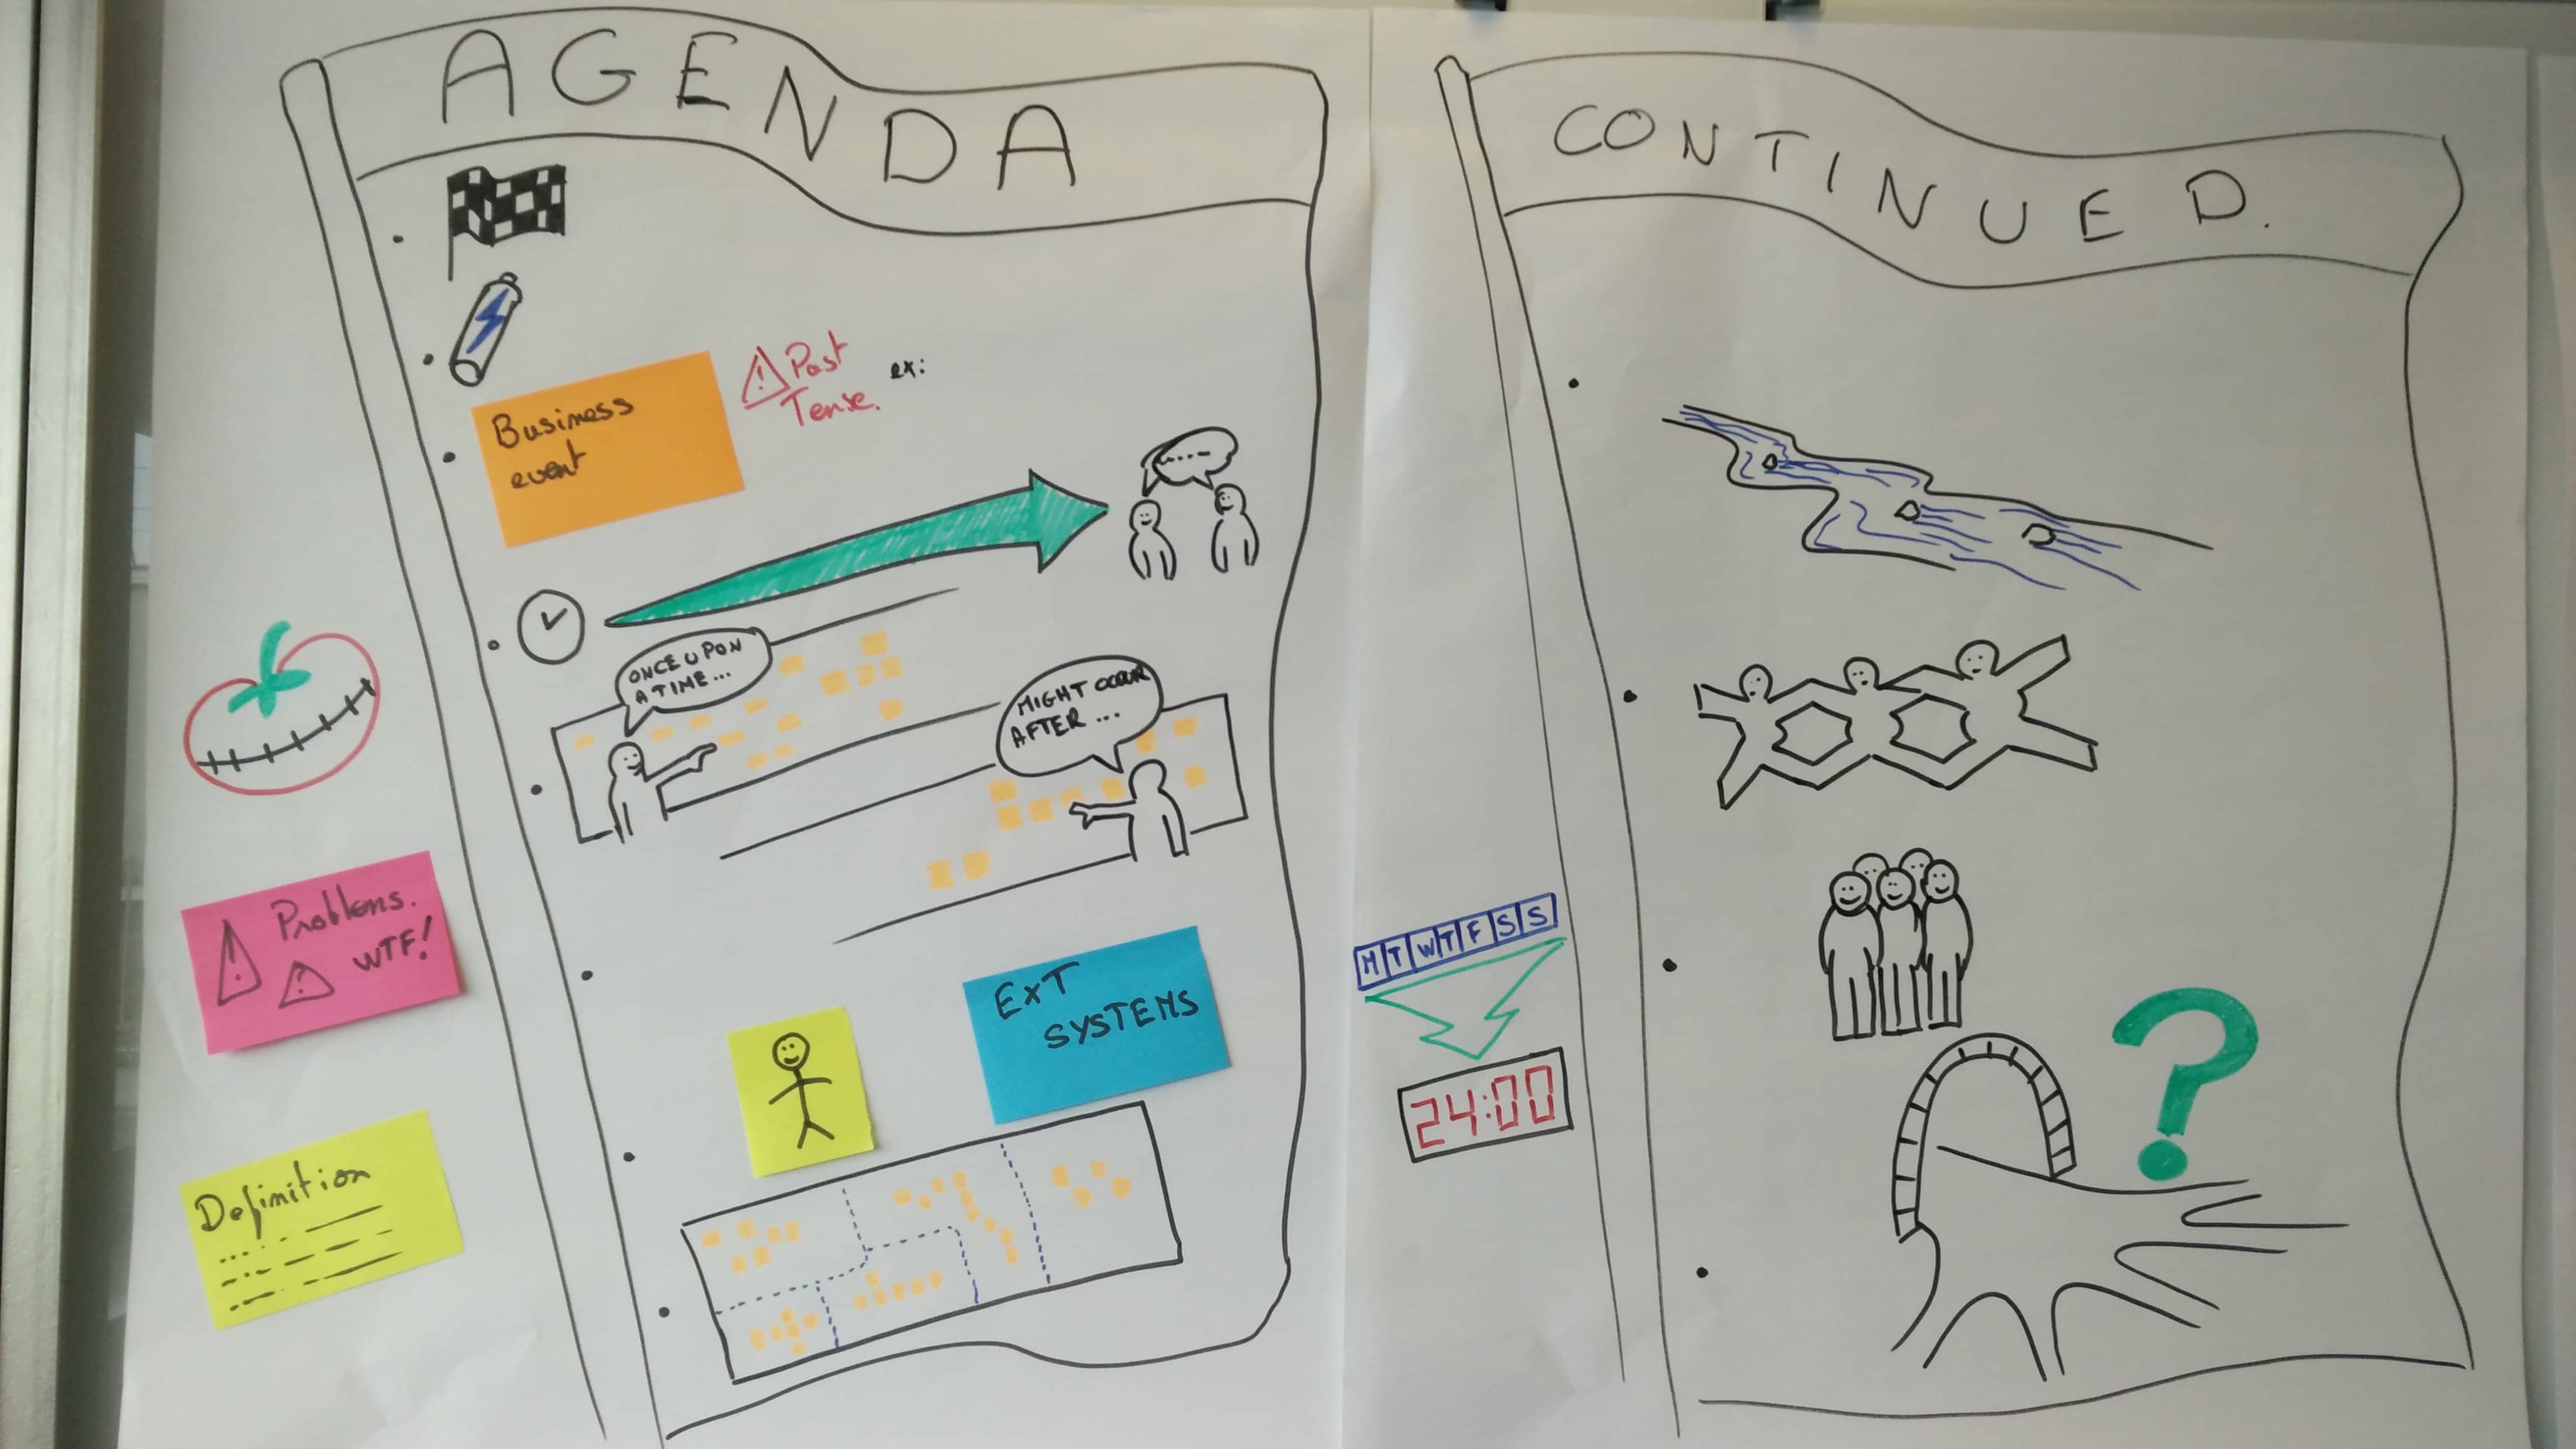 AGENDA
Business
event
Past
Tense.
ex:
ONCE UPON
A TIME...
MIGHT OCCUR
AFTER ...
Problems.
WTF!
EXT
SYSTEMS
Definition
CONTINUED.
M T W T F S S
24:00